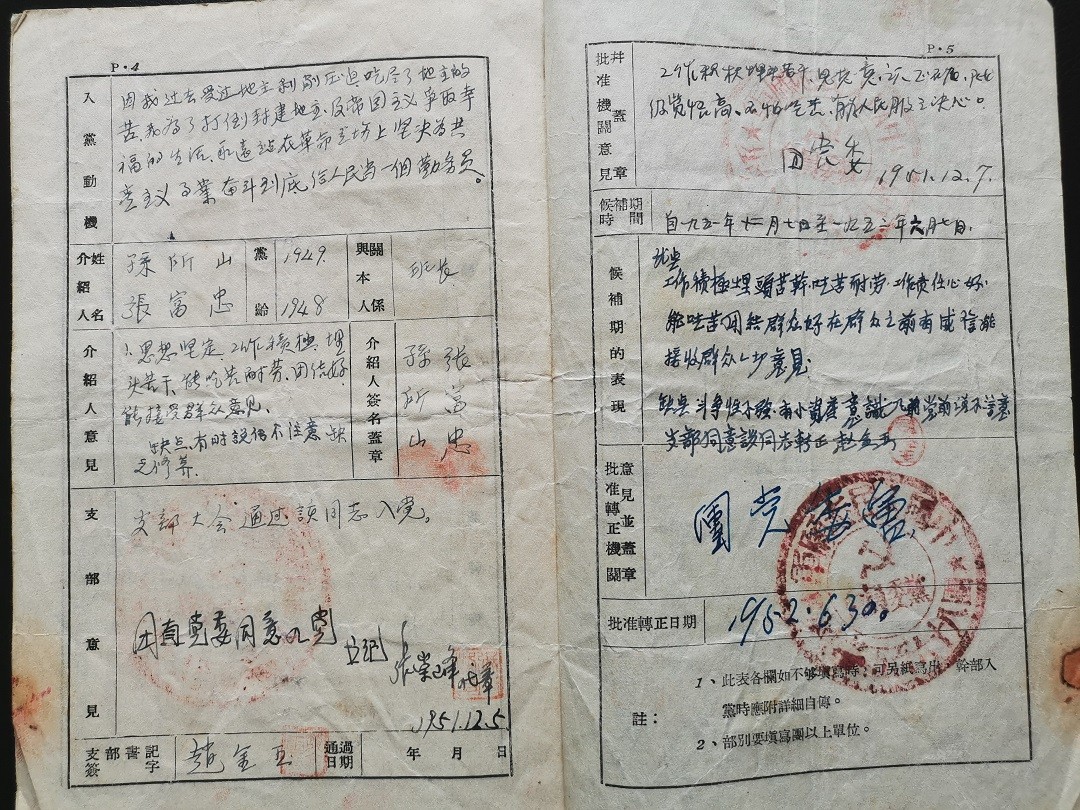 P·4
入黨動機
因我过去受过地主剥削压迫吃尽了地主的
苦,我为了打倒封建地主及帝国主义争取幸
福的生活,永远站在革命立场上坚决为共
产主义事業奋斗到底给人民当一個勤务员。
介紹人姓名
孫所山
張富忠
黨齡
1949
1948
與本人關係
班长
介紹人意見
1.思想坚定,工作積極,埋
头苦干,能吃苦耐劳,团结好,
能接受群众意见。
缺点,有时説话不注意,缺
乏修养.
介紹人簽名蓋章
張富忠
孫所山
支部意見
支部大会通过該同志入党。
团直党委同意入党
1951.12.5
支部書記簽字
趙金玉
通過日期
年 月 日
P·5
批准機關意見并蓋章
工作积极埋头苦干,
级觉悟高,不怕吃苦,有为人民服务决心。
团党委
1951.12.7.
候補時期間
自一九五一年十二月七日至一九五二年六月七日.
候補期的表現
优点
工作積極埋頭苦幹,吃苦耐劳,工作责任心好,
能吃苦团结群众好在群众之前有威信能
接收群众一切意见.
缺点斗争性不强,有小資產意識
支部同意該同志轉正 赵金玉
批准轉正機關意見並蓋章
團党委
批准轉正日期
1952.6.30。
註:
1、此表各欄如不够填寫時,可另紙寫出,幹部入
黨時應附詳細自傳。
2、部別要填寫團以上單位。